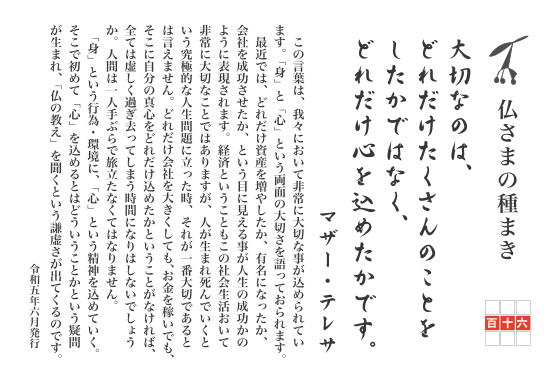 仏さまの種まき
百十六
大切なのは、
どれだけたくさんのことを
したかではなく、
どれだけ心を込めたかです。
マザー・テレサ
この言葉は、我々において非常に大切な事が込められてい
ます。「身」と「心」という両面の大切さを語っておられます。
最近では、どれだけ資産を増やしたか、有名になったか、
会社を成功させたか、という目に見える事が人生の成功かの
ように表現されます。経済ということもこの社会生活おいて
非常に大切なことではありますが、人が生まれ死んでいくと
いう究極的な人生問題に立った時、それが一番大切であると
は言えません。どれだけ会社を大きくしても、お金を稼いでも、
そこに自分の真心をどれだけ込めたかということがなければ、
全ては虚しく過ぎ去ってしまう時間になりはしないでしょう
か。人間は一人手ぶらで旅立たなくてはなりません。
「身」という行為・環境に、「心」という精神を込めていく。
そこで初めて「心」を込めるとはどういうことかという疑問
が生まれ、「仏の教え」を聞くという謙虚さが出てくるのです。
令和五年六月発行